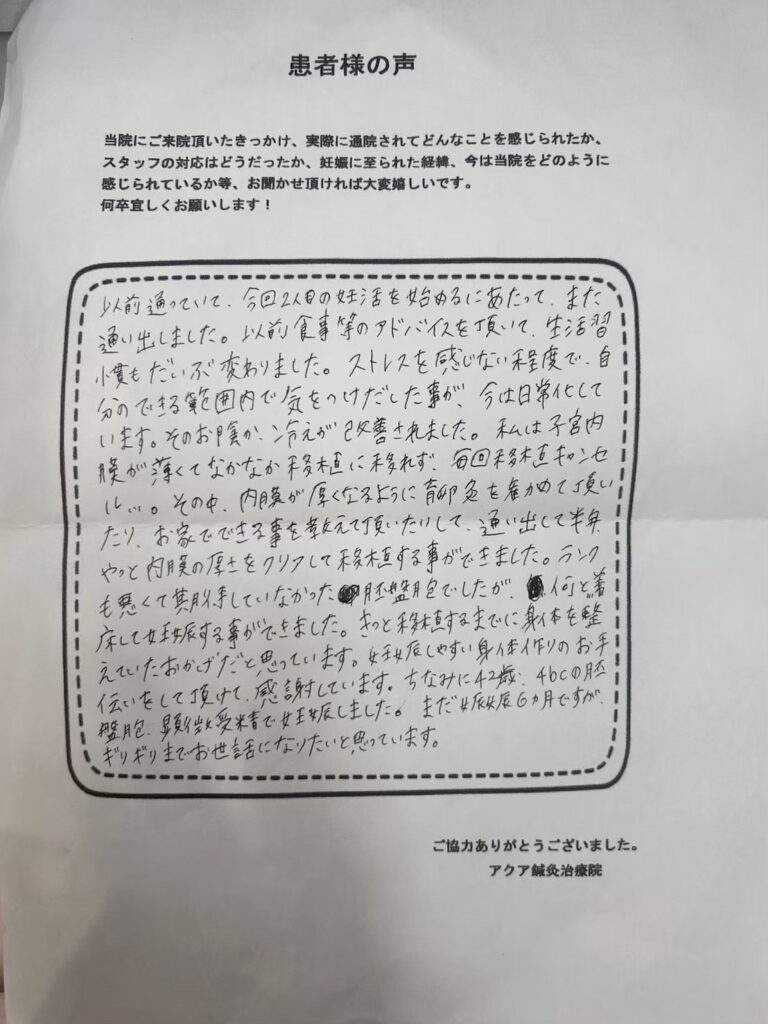 患者様の声
当院にご来院頂いたきっかけ、実際に通院されてどんなことを感じられたか、
スタッフの対応はどうだったか、妊娠に至られた経緯、今は当院をどのように
感じられているか等、お聞かせ頂ければ大変嬉しいです。
何卒宜しくお願いします！
以前通っていて、今回2人目の妊活を始めるにあたって、また
通い出しました。以前食事等のアドバイスを頂いて、生活習
慣もだいぶ変わりました。ストレスを感じない程度で、自
分のできる範囲内で気をつけだした事が、今は日常化して
います。そのお陰か、冷えが改善されました。私は子宮内
膜が薄くてなかなか移植に移れず、毎回移植キャンセ
ル…。その中、内膜が厚くなるように育卵灸を進めて頂い
たり、お家でできる事を教えて頂いたりして、通い出して半年
やっと内膜の厚さをクリアして移植する事ができました。ランク
も悪くて期待していなかった胚盤胞でしたが、何と着
床して妊娠する事ができました。きっと移植するまでに身体を整
えていたおかげだと思っています。妊娠しやすい身体作りのお手
伝いをして頂けて、感謝しています。ちなみに42歳、4bcの胚
盤胞、顕微受精で妊娠しました。まだ妊娠6カ月ですが、
ギリギリまでお世話になりたいと思っています。
ご協力ありがとうございました。
アクア鍼灸治療院